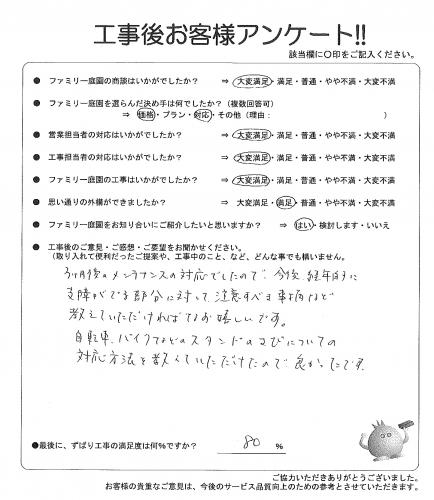 工事後お客様アンケート!!
該当欄に○印をご記入ください。
● ファミリー庭園の商談はいかがでしたか? ⇒ 大変満足・満足・普通・やや不満・大変不満
● ファミリー庭園を選らんだ決め手は何でしたか?(複数回答可)
⇒ 価格・プラン・対応・その他(理由: )
● 営業担当者の対応はいかがでしたか? ⇒ 大変満足・満足・普通・やや不満・大変不満
● 工事担当者の対応はいかがでしたか? ⇒ 大変満足・満足・普通・やや不満・大変不満
● ファミリー庭園の工事はいかがでしたか? ⇒ 大変満足・満足・普通・やや不満・大変不満
● 思い通りの外構ができましたか? ⇒ 大変満足・満足・普通・やや不満・大変不満
● ファミリー庭園をお知り合いにご紹介したいと思いますか? ⇒ はい・検討します・いいえ
● 工事後のご意見・ご感想・ご要望をお聞かせください。
(取り入れて便利だったご提案や、工事中のこと、など、どんな事でも構いません。
3ヶ月後のメンテナンスの対応でしたので、今後、経年時に
支障がでる部分に対して、注意すべき事柄など
教えていただければなお嬉しいです。
自転車、バイクなどのスタンドのさびについての
対応方法を教えていただけたので良かったです。
●最後に、ずばり工事の満足度は何%ですか? 80 %
ご協力いただきありがとうございました。
お客様の貴重なご意見は、今後のサービス品質向上のための参考とさせていただきます。